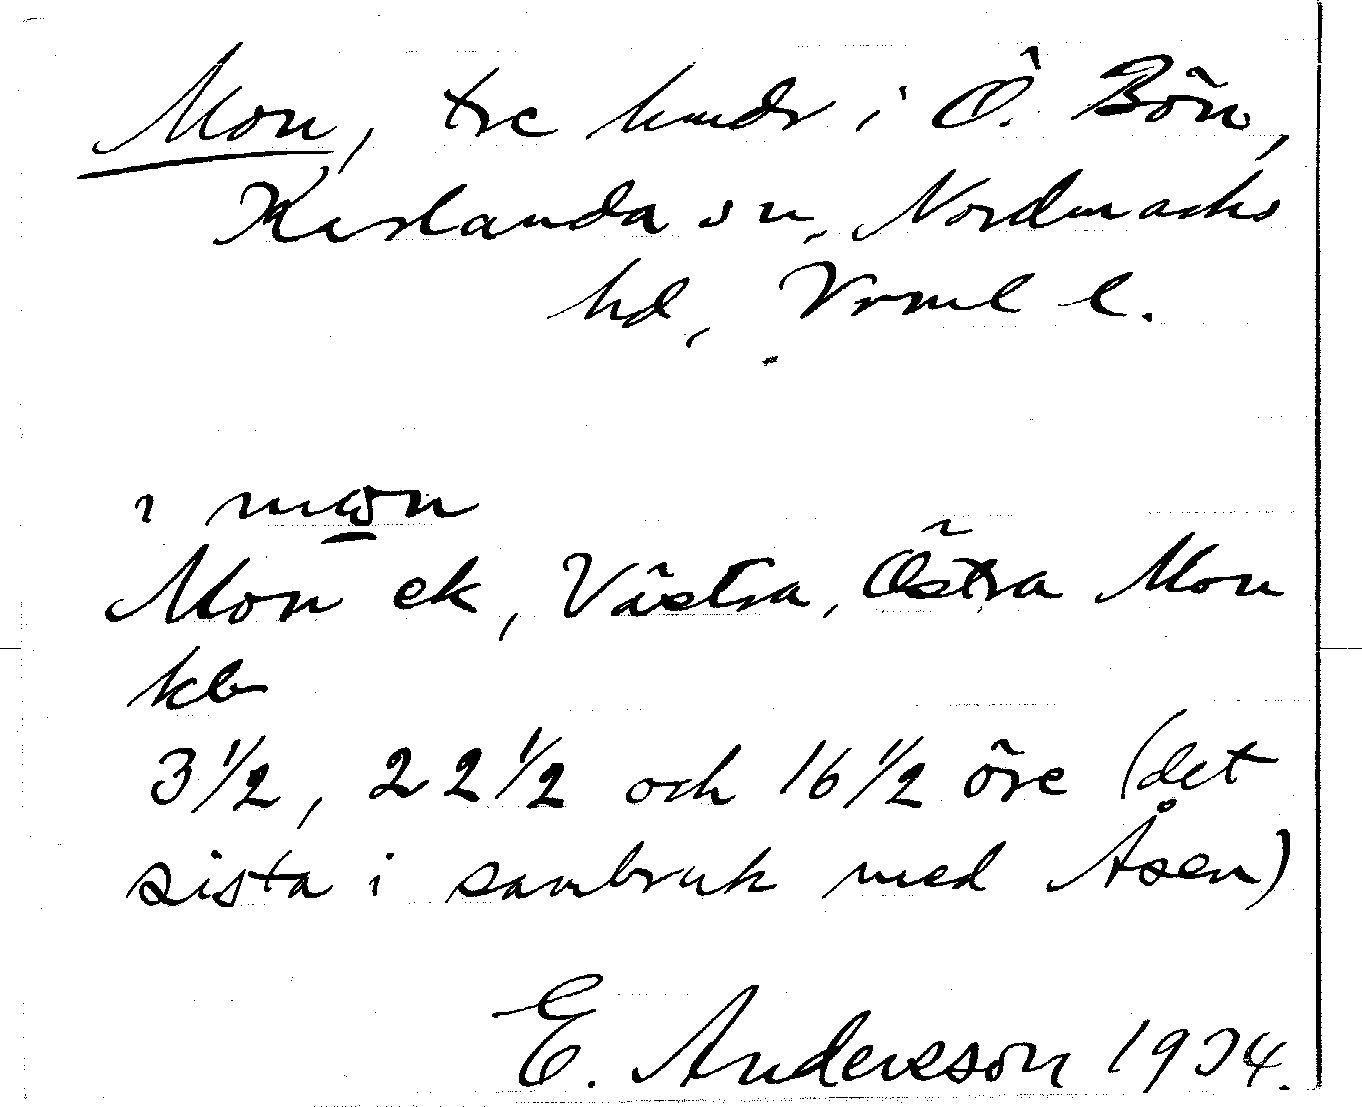 Mon, tre hmdr i Ö. Bön,
Karlanda sn, Nordmarks
hd, Vrml l.
i mɷn
Mon ek, Västra, Östra Mon
kb
3 1/2, 22 1/2 och 16 1/2 öre (det
sista i sambruk med Åsen)
E. Andersson 1934.